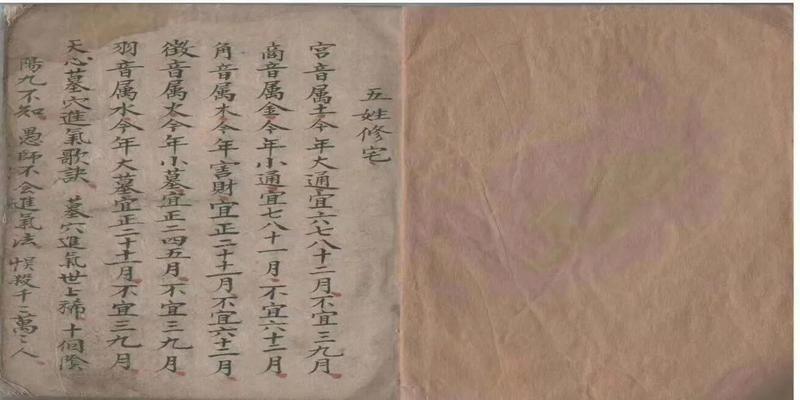 五姓修宅
宮音属土今年大通宜六七八十二月不宜三九月
商音属金今年小通宜七八十一月不宜六十二月
角音属木今年害財宜正二十十一月不宜六十二月
徵音属火今年小墓宜正二四五月不宜三九月
羽音属水今年大墓宜正二十十一月不宜三九月
天心墓穴進氣歌訣 墓穴進氣世上稀十個陰
陽九不知愚師不会進氣法悮殺千千萬萬人